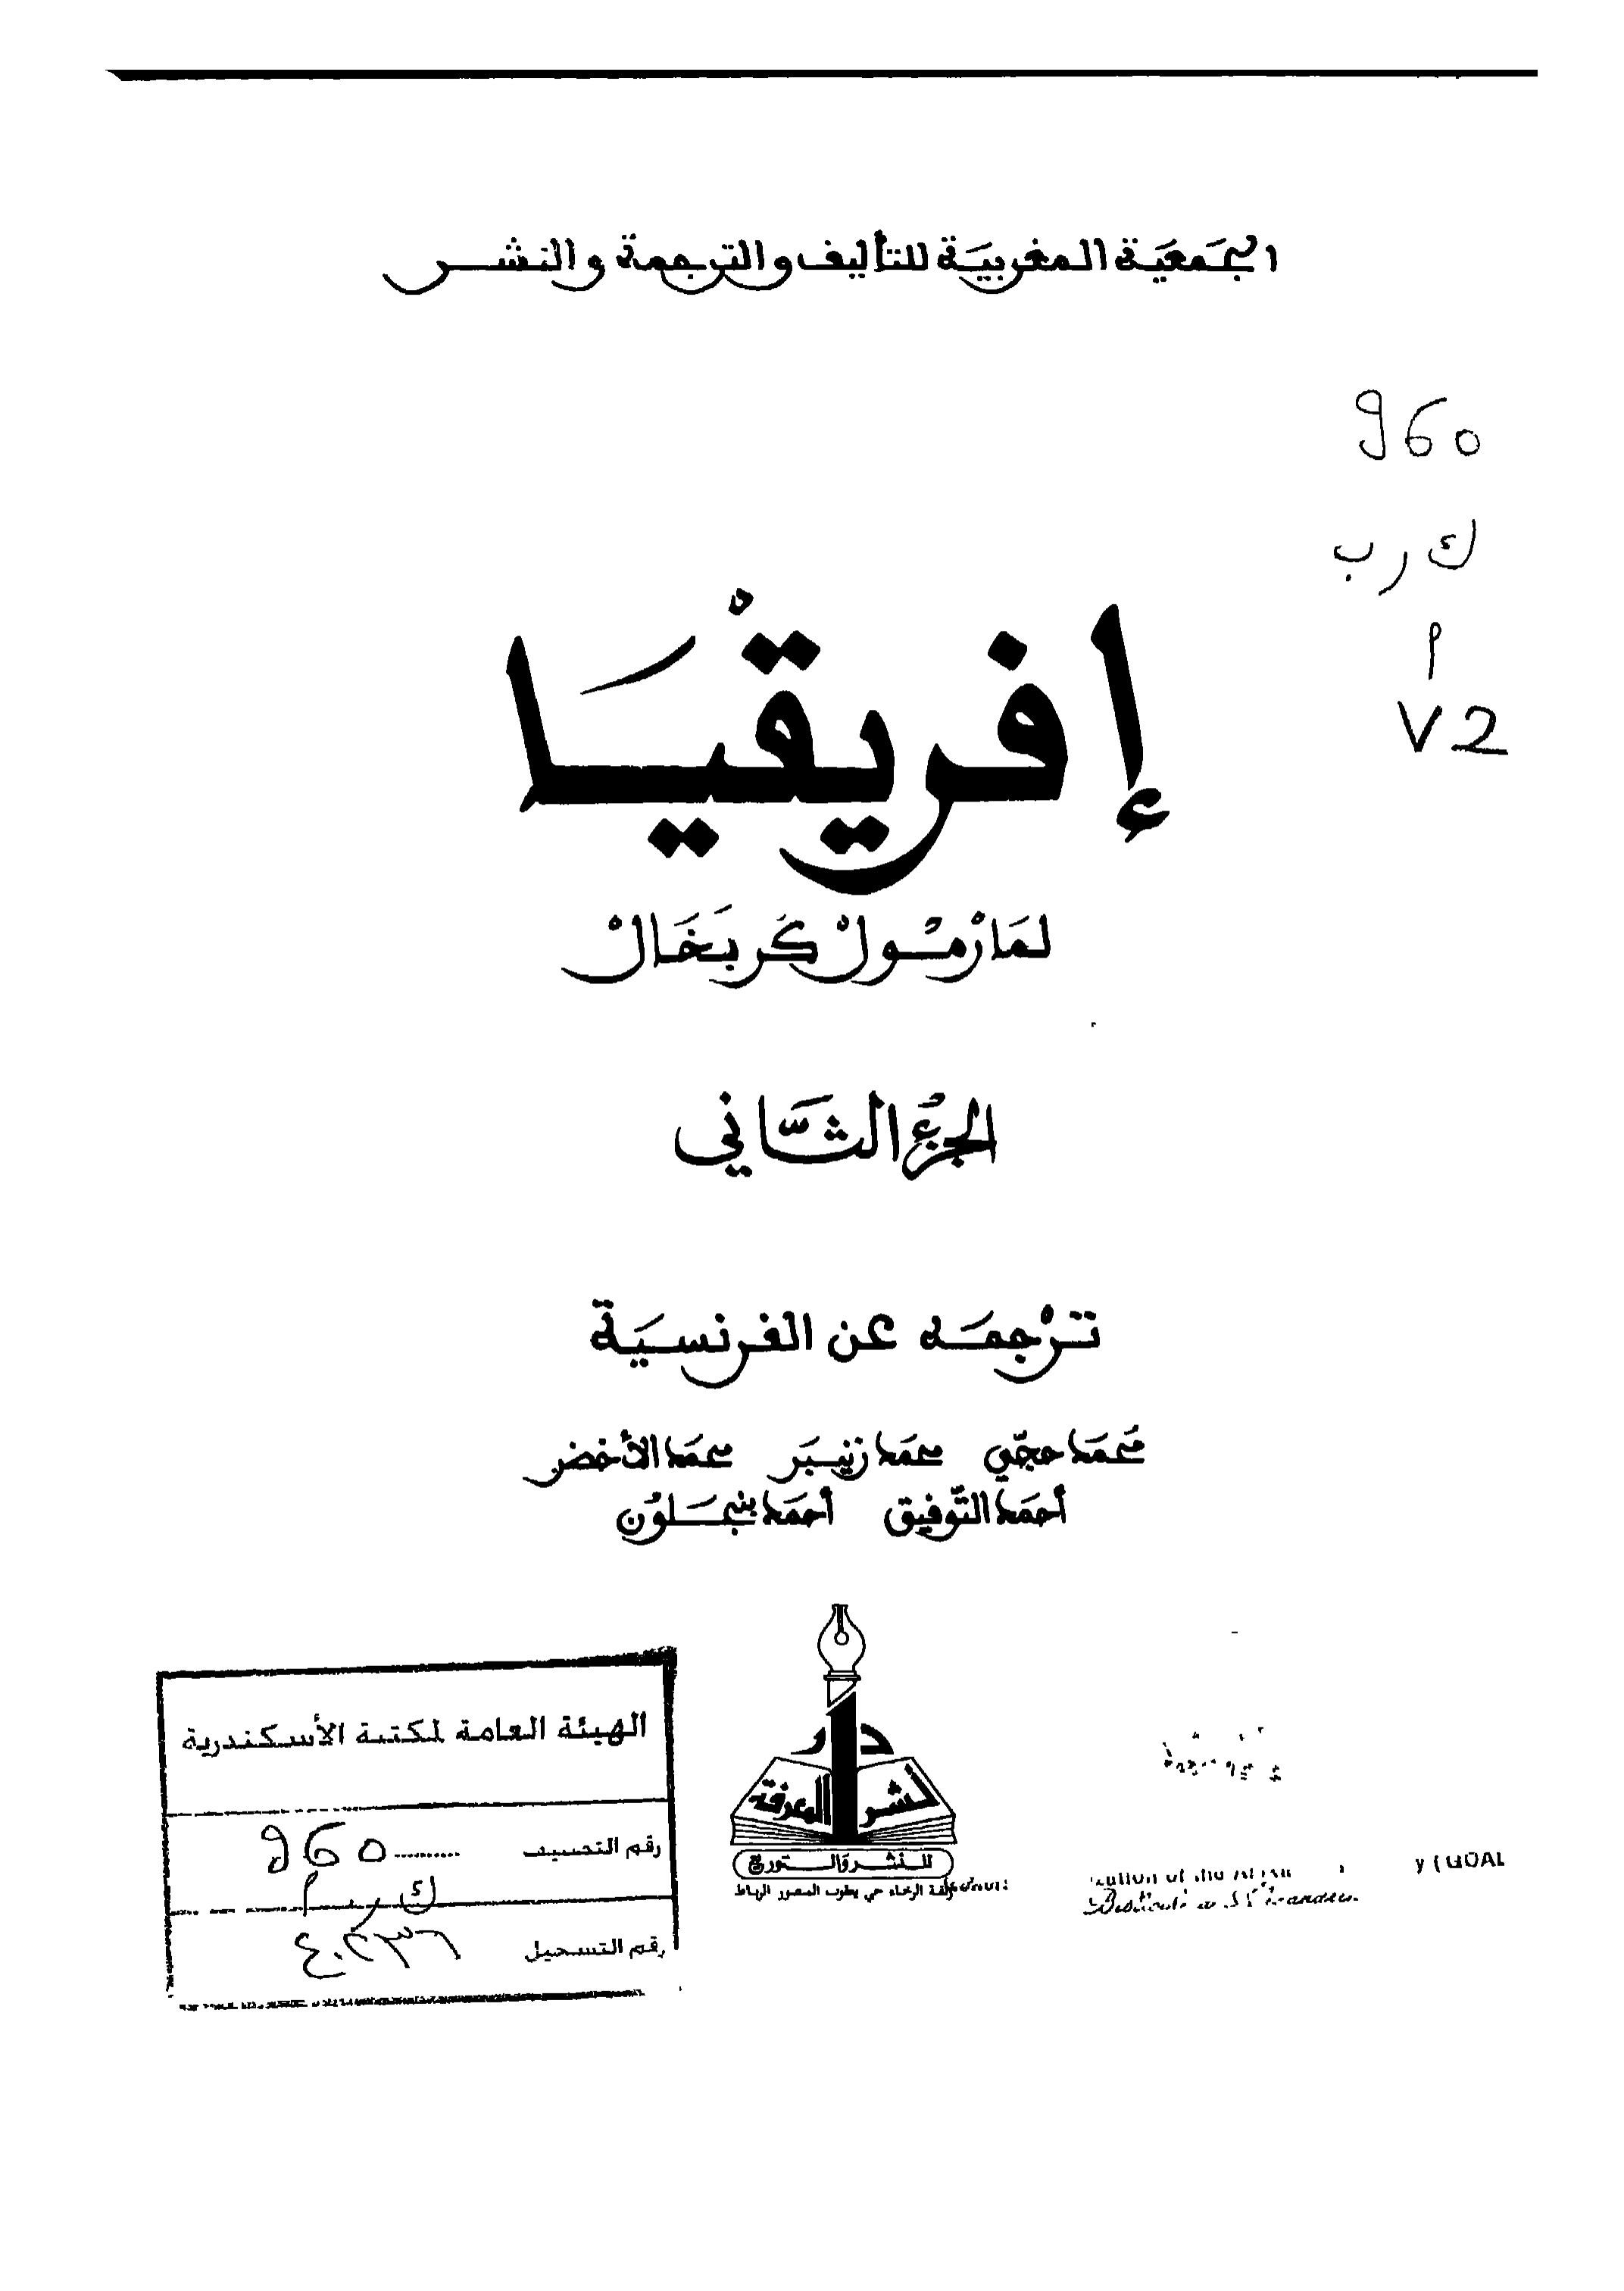 الجمعية المغربية للتأليف والترجمة والنشر
960
ك ر ب
ا
V2
إفريقْيَا
لمَارْمُولْ كَربَخَالْ
الجزءُ الثَّاني
ترْجمَه عن الفرنسيَة
محمَد حجّي محمَد زنيبَر محمَد الأخضر
أحمَد التّوفيق أحمَد بنجَلوُن
الهيئة العامة لمكتبة الأسكندرية
رقم التصنيف ......... 960
ك ر ا
رقم التسجيل ٤٠٢٣٦
دار
نشر المعرفة
للنشر وَالتوزيع
حي يعقوب المنصور الرباط
GOAL